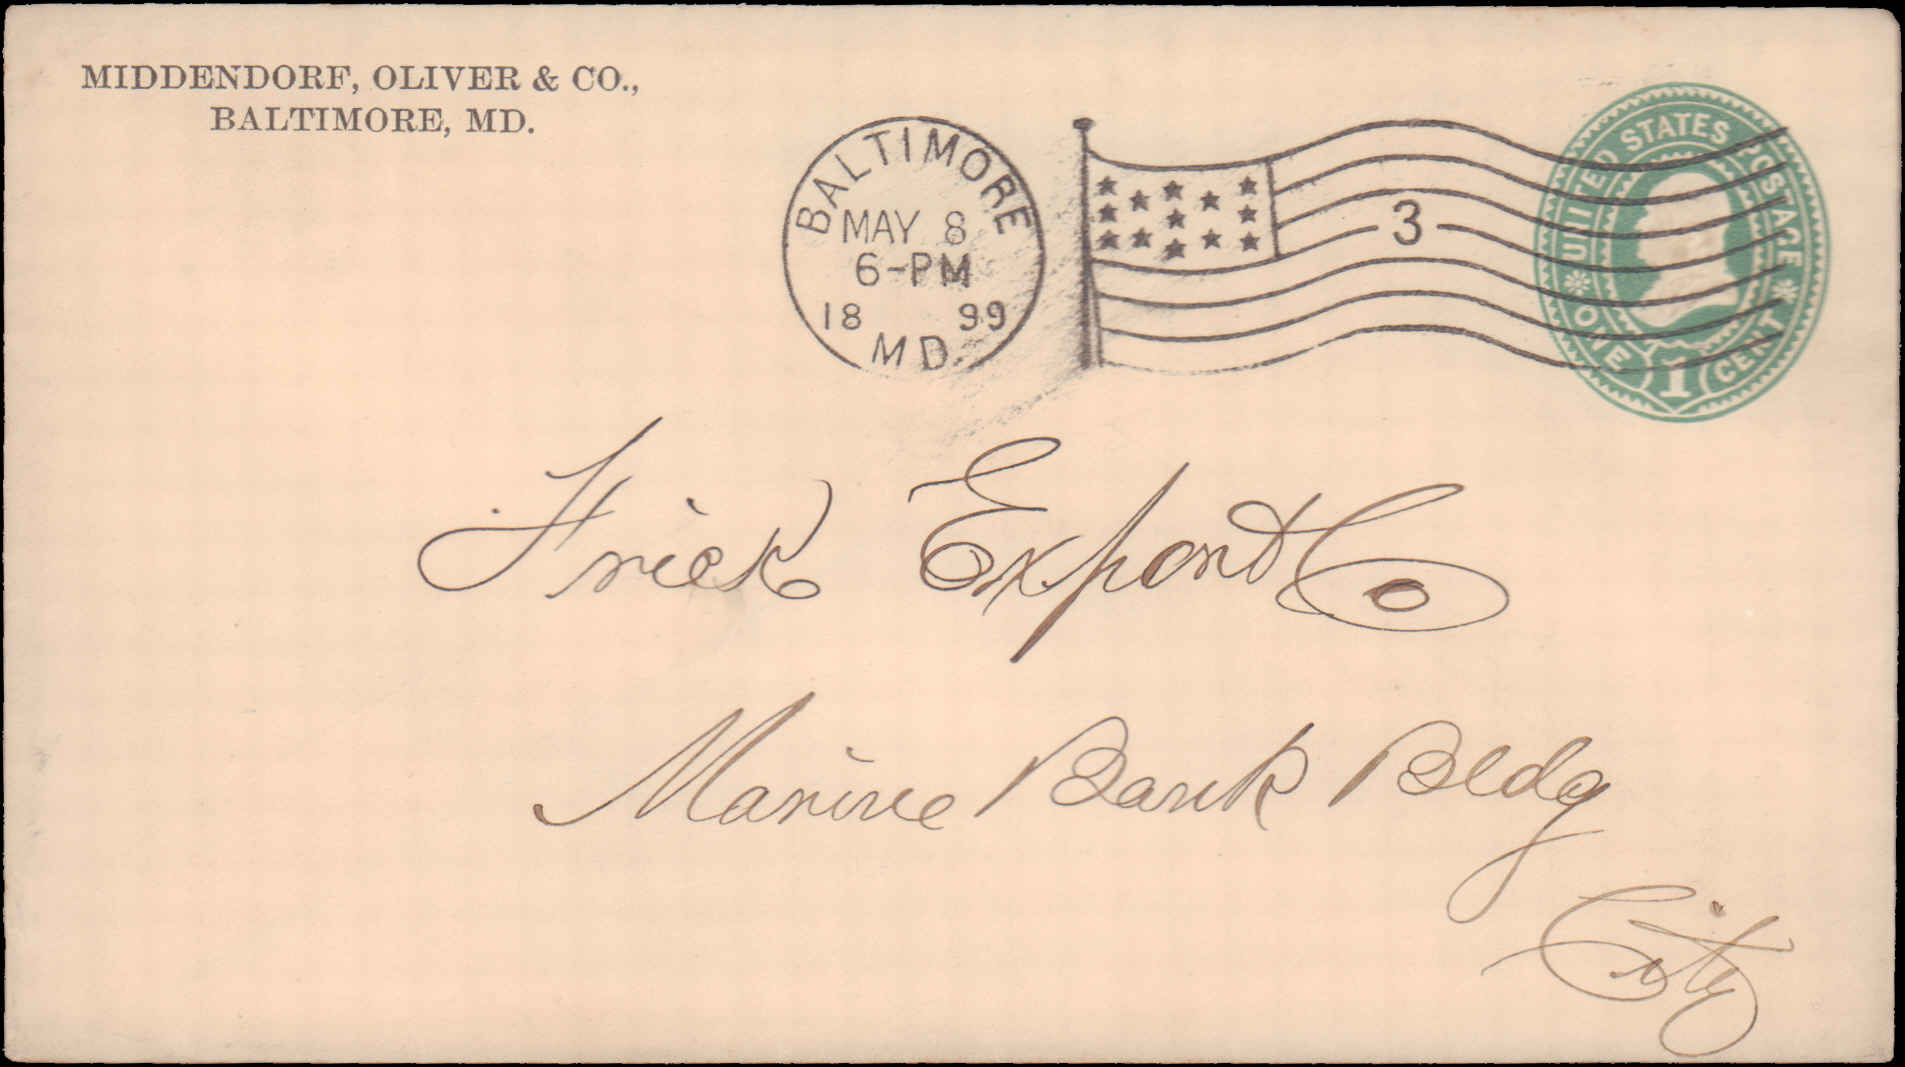 MIDDENDORF, OLIVER & CO.,
BALTIMORE, MD.
BALTIMORE
MAY 8
6-PM
18 99
MD.
3
UNITED STATES POSTAGE
ONE 1 CENT
Frick Export Co
Marine Bank Bldg
City